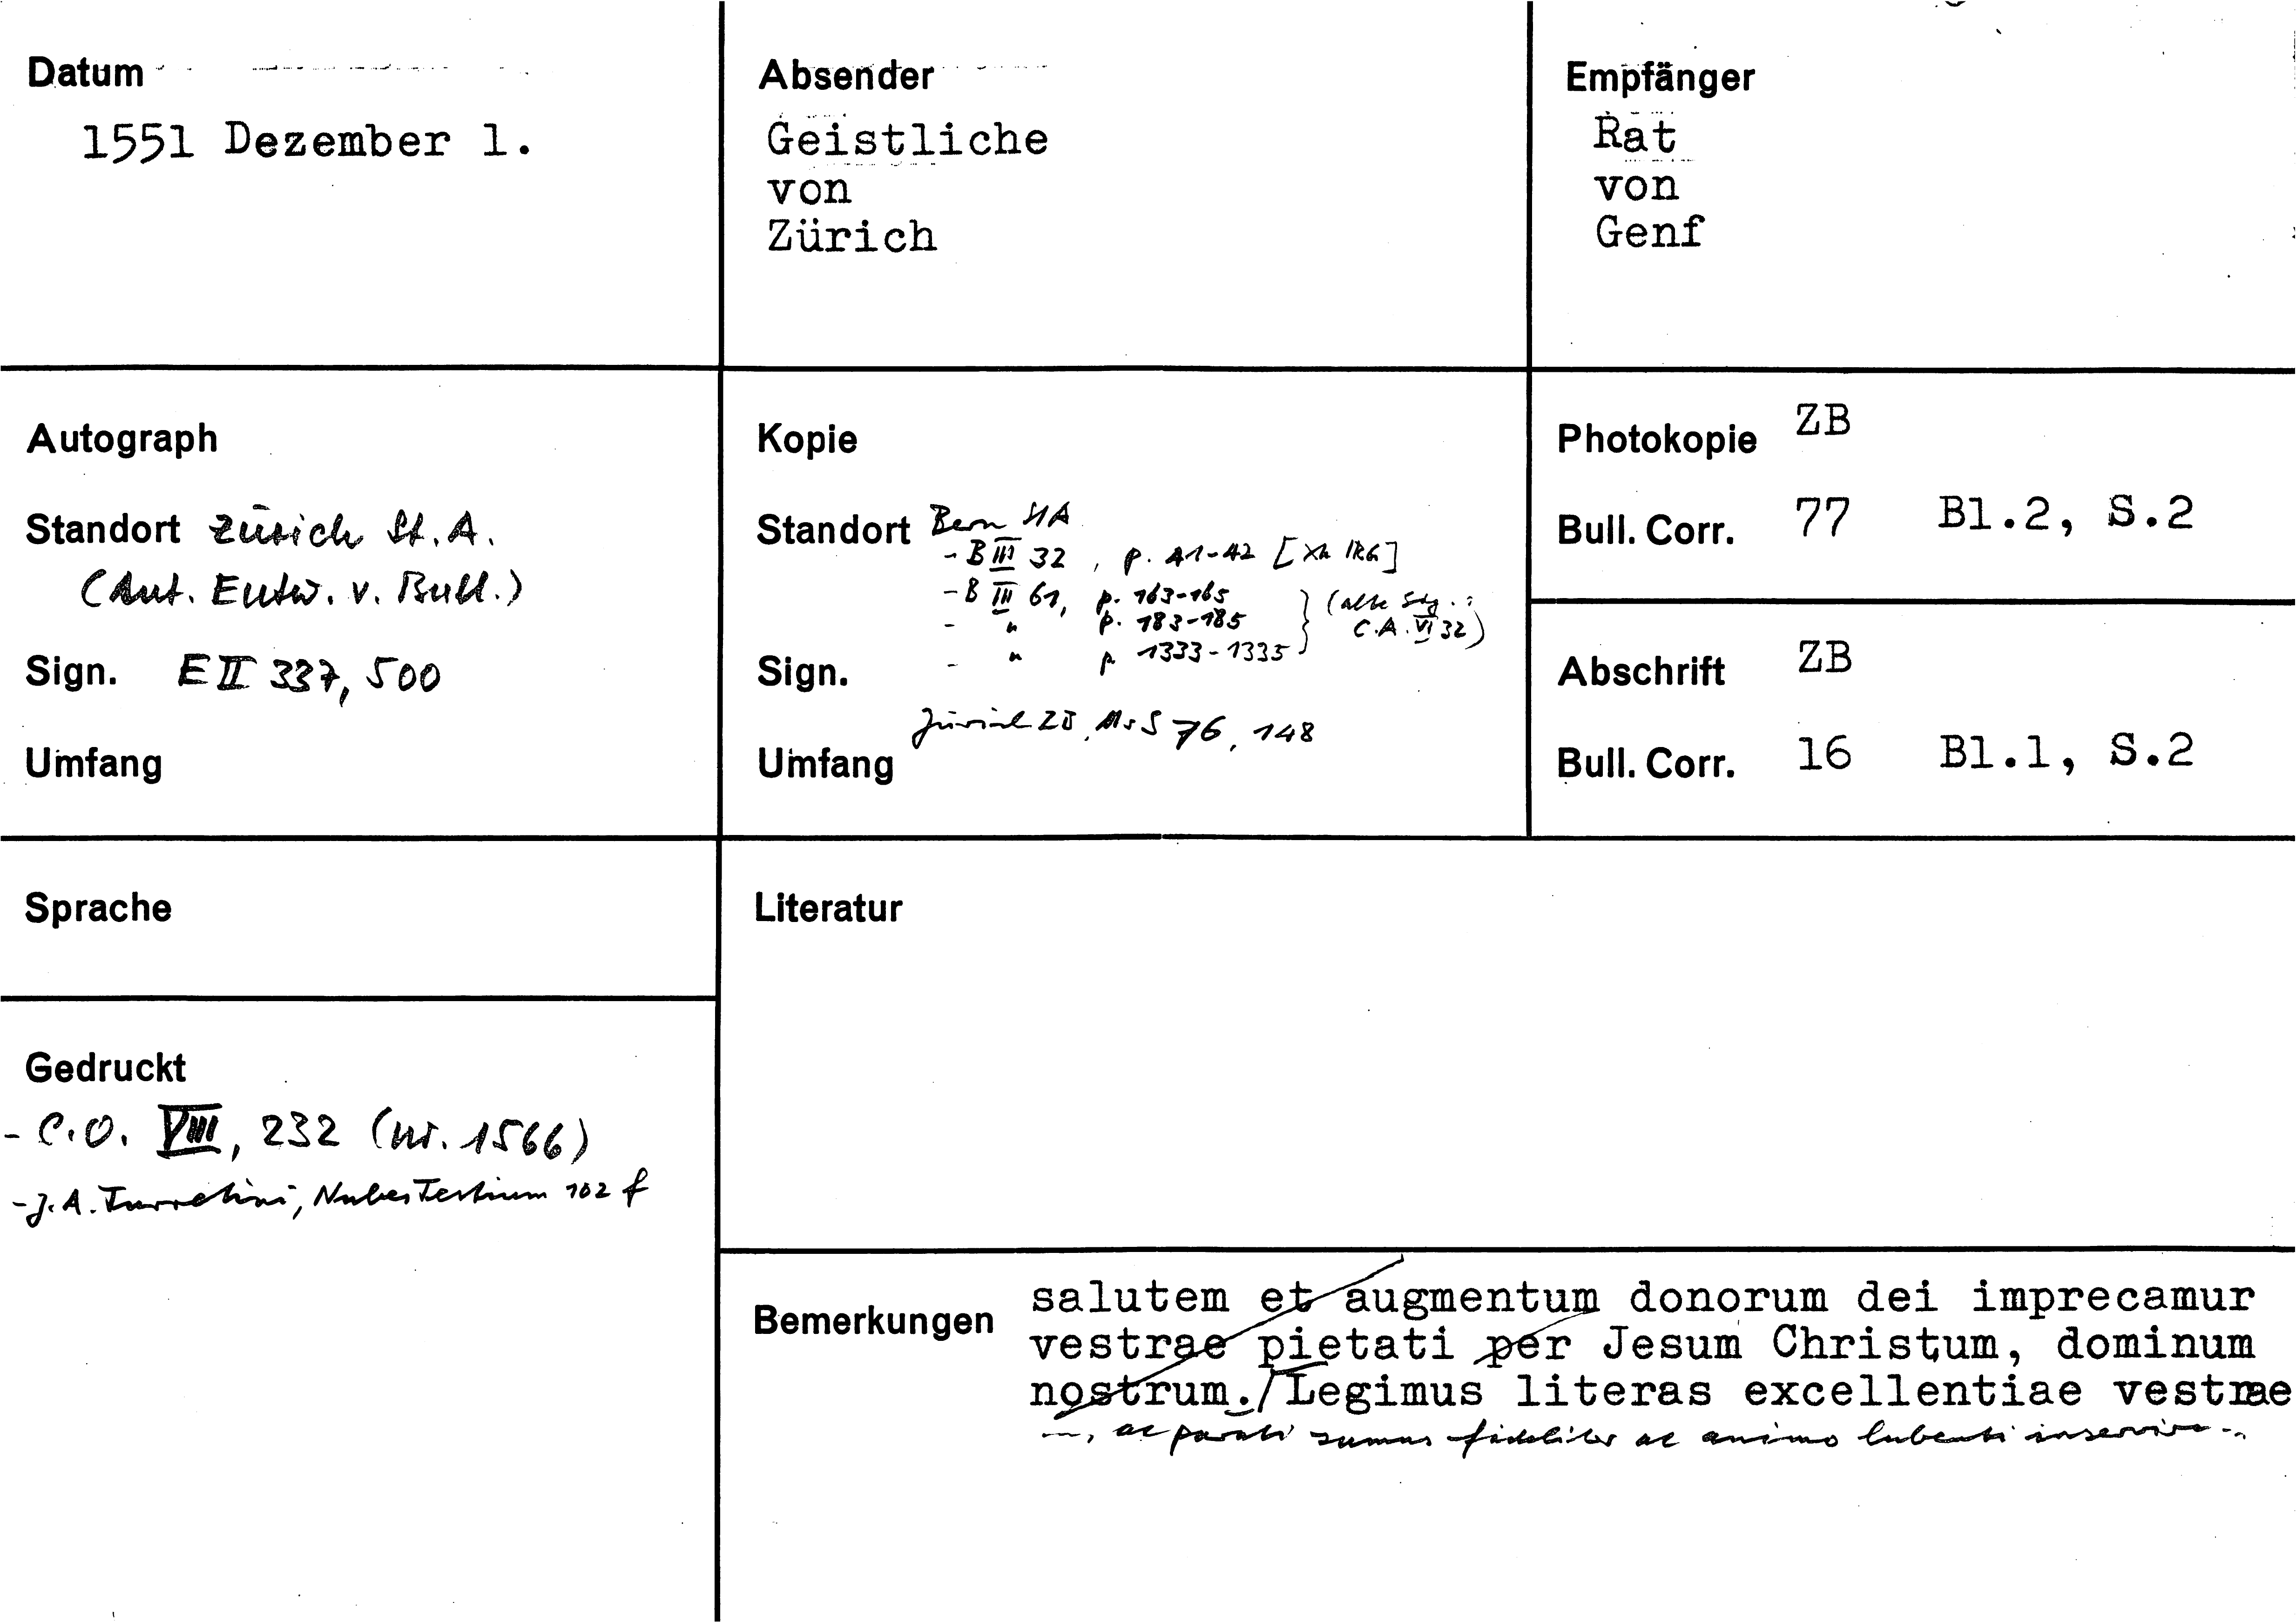 Datum
1551 Dezember 1.
Absender
Geistliche
von
Zürich
Empfänger
Rat
von
Genf
Autograph
Standort Zürich St.A.
(Aut. Entw. v. Bull.)
Sign. E II 337, 500
Umfang
Kopie
Standort Bern StA
- B III 32, p. 41-42 [
- B III 61, p. 163-165
- " p. 183-185 } (alte Sig.:
C.A. VI 32)
- " p. 1333-1335
Sign.
Zürich ZB, Ms S 76, 148
Umfang
Photokopie ZB
Bull. Corr. 77 Bl.2, S.2
Abschrift ZB
Bull. Corr. 16 Bl.1, S.2
Sprache
Gedruckt
- C.O. VIII, 232 (nr. 1566)
- J.A. Turretini, Nubes Testium 102 f
Literatur
Bemerkungen
salutem et augmentum donorum dei imprecamur
vestrae pietati per Jesum Christum, dominum
nostrum./Legimus literas excellentiae vestrae
..., ac parati sumus fideliter ac animo lubenti inservire..